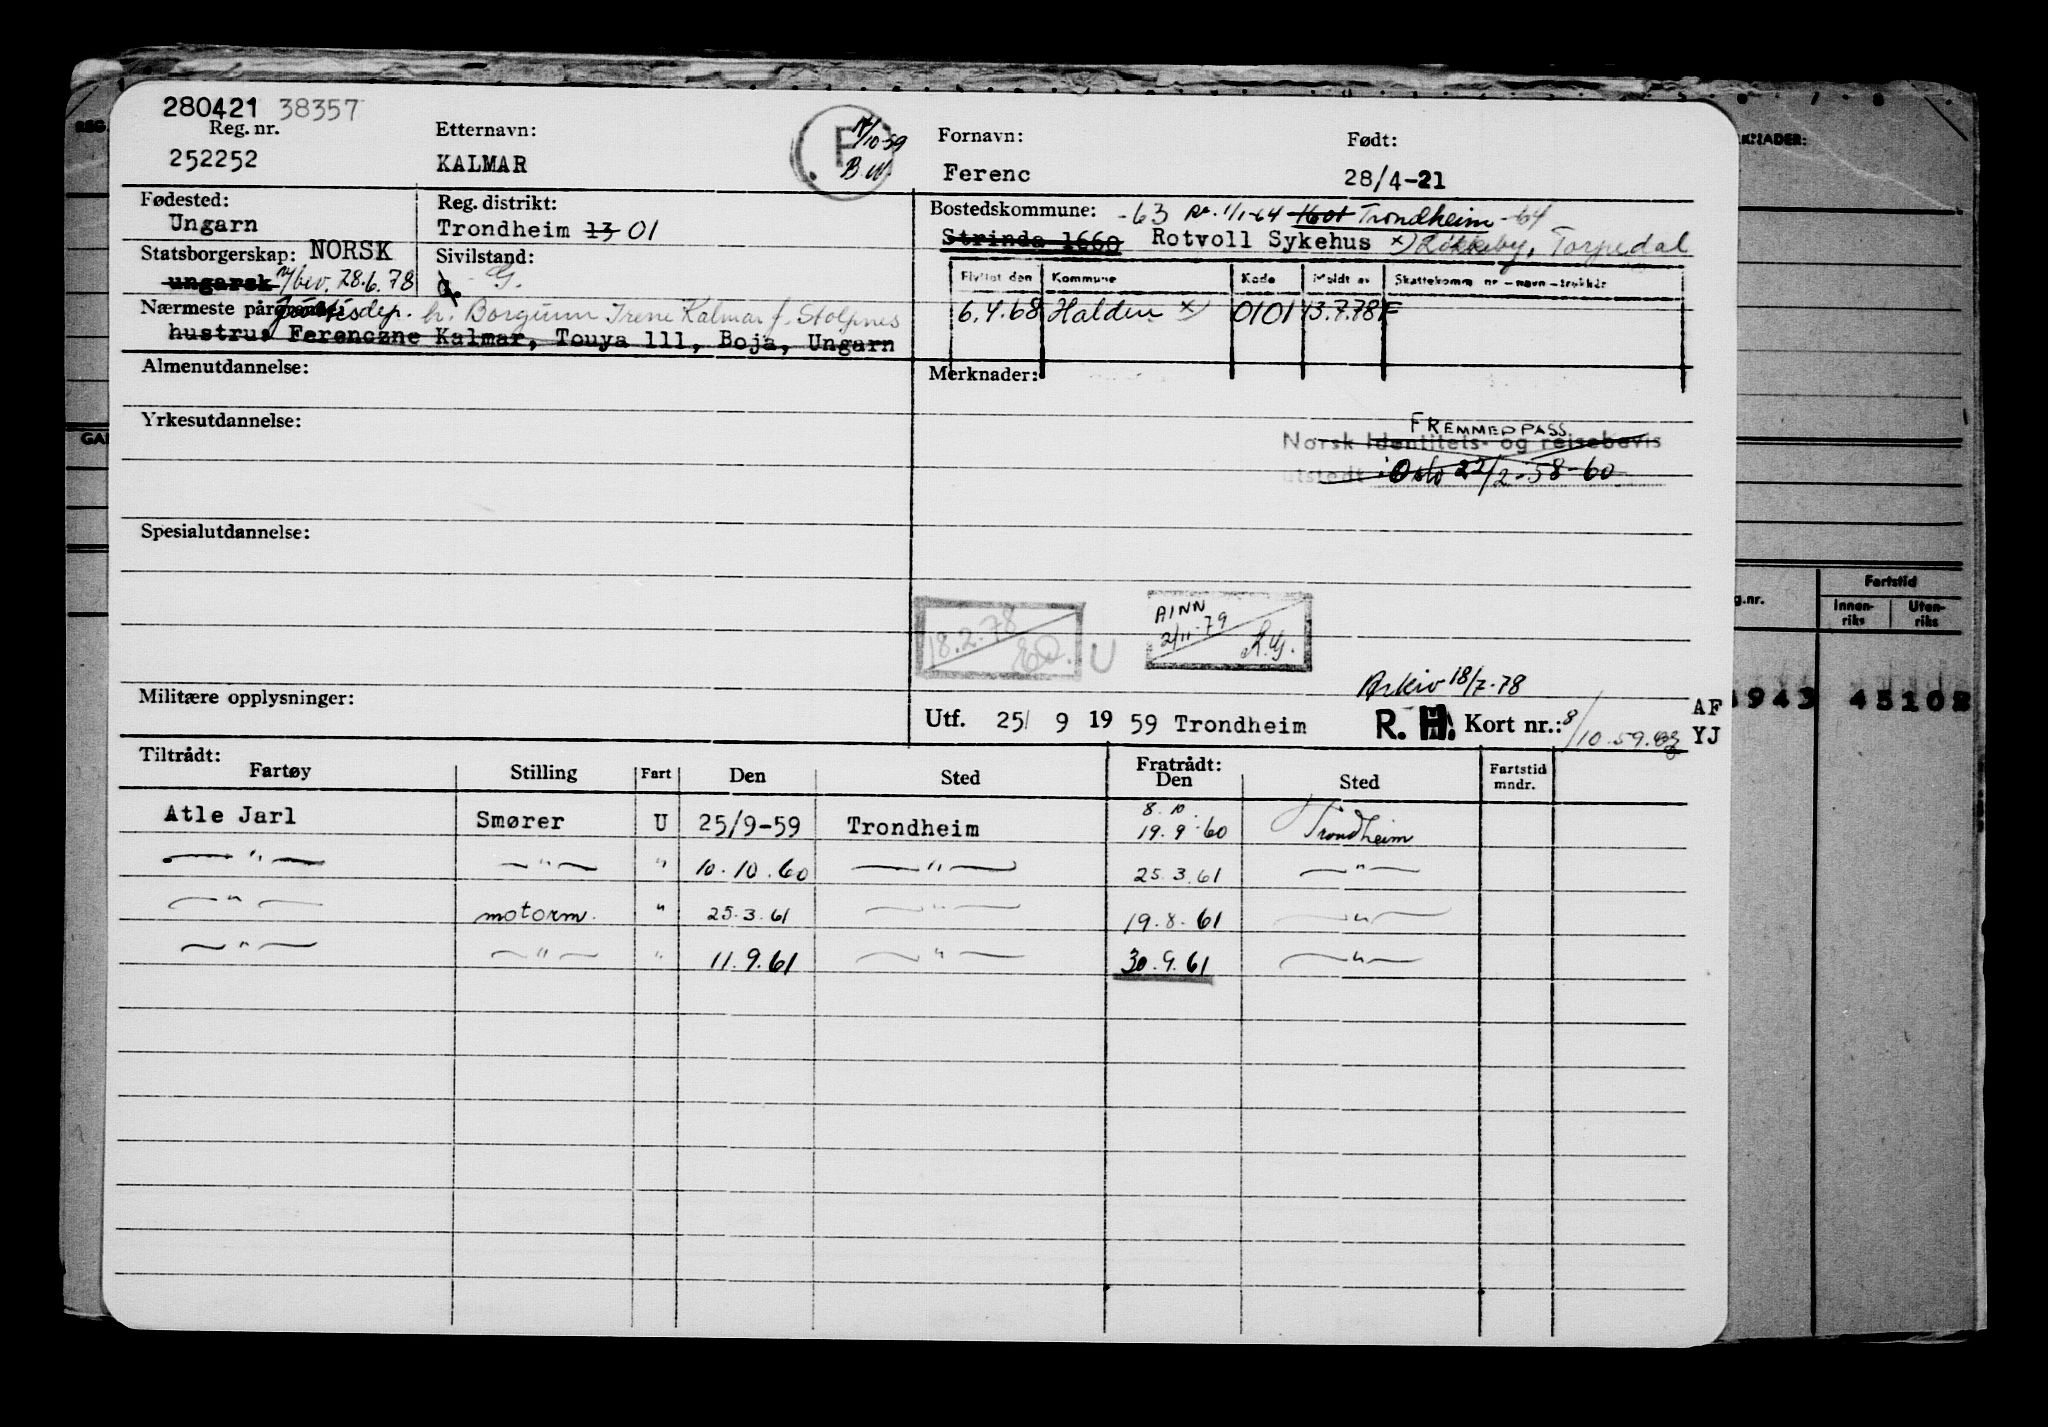 280421 38357
Reg. nr. Etternavn: Fornavn: Født:
252252 KALMAR F 10-59 B.W. Ferenc 28/4-21
Fødested: Reg. distrikt: Bostedskommune: -63 1/1-64 1601 Trondheim -64
Ungarn Trondheim 13 01 Strinda 1660 Rotvoll Sykehus x) Torpedal
Statsborgerskap: NORSK Sivilstand:
ungarsk 28.6.78 G.
Flyttet den Kommune Kode Meldt av Skattekomm nr - navn - trekkår
6.4.68 Halden x) 0101 13.7.78 F
Nærmeste pårørende: h. Borgunn Irene Kalmar f. Stolpnes
hustru: Ferenczne Kalmar, Touya 111, Boja, Ungarn
Almenutdannelse: Merknader:
Yrkesutdannelse:
FREMMEDPASS
Norsk Identitets- og reisebevis
utstedt Oslo 22/2-58-60
Spesialutdannelse:
18.2.78 U
AINN 2/11-79
Arkiv 18/7-78
Militære opplysninger:
Utf. 25/ 9 19 59 Trondheim R. H. Kort nr.: 8/10.59. AF
YJ
Tiltrådt: Fratrådt:
Fartøy Stilling Fart Den Sted Den Sted Fartstid mndr.
8.10.
Atle Jarl Smører U 25/9-59 Trondheim 19.9.60 Trondheim
— " — — " — " 10.10.60 — " — 25.3.61 — " —
— " — motorm. " 25.3.61 — " — 19.8.61 — " —
— " — — " — " 11.9.61 — " — 30.9.61 — " —
Fartstid
Innen-riks Uten-riks
943 45102